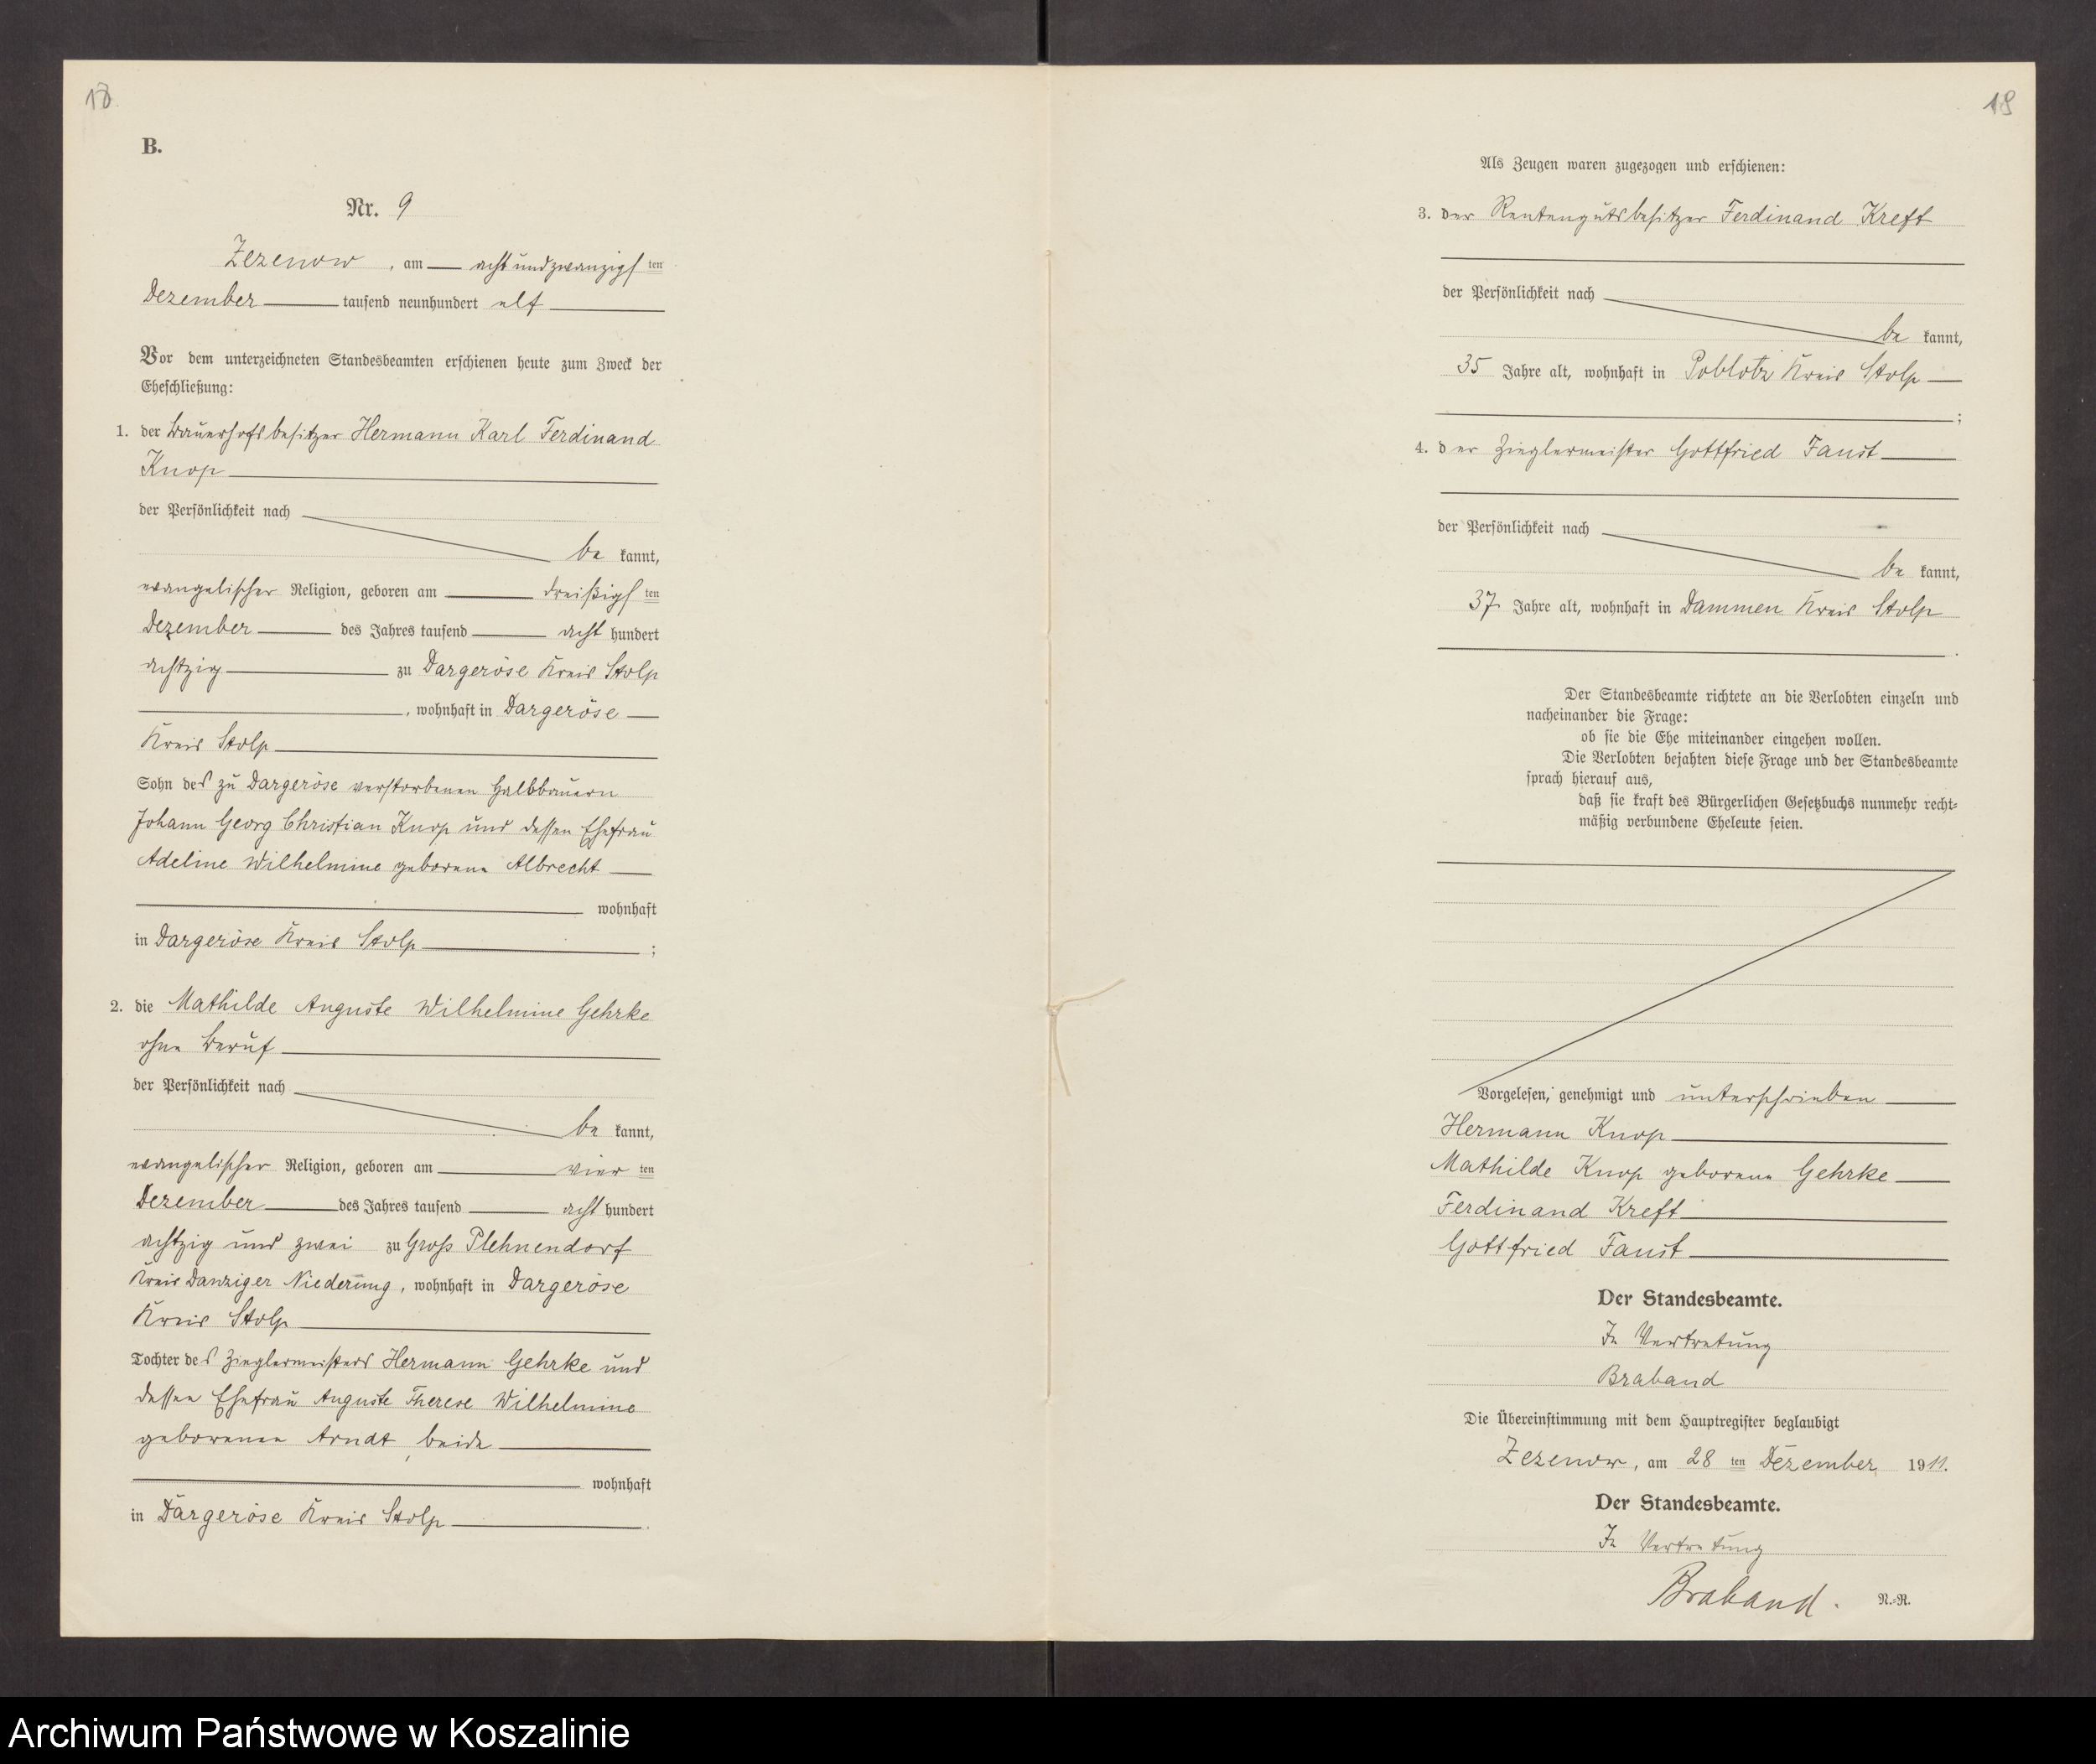 18
B.
Nr. 9
Zezenow, am — achtundzwanzigsten
Dezember — tausend neunhundert elf —
Vor dem unterzeichneten Standesbeamten erschienen heute zum Zweck der
Eheschließung:
1. der Bauerhofsbesitzer Hermann Karl Ferdinand
Knop —
der Persönlichkeit nach
be kannt,
evangelischer Religion, geboren am — dreißigsten
Dezember — des Jahres tausend — acht hundert
achtzig — zu Dargeröse Kreis Stolp
—, wohnhaft in Dargeröse —
Kreis Stolp —
Sohn des zu Dargeröse verstorbenen Halbbauern
Johann Georg Christian Knop und dessen Ehefrau
Adeline Wilhelmine geborene Albrecht —
— wohnhaft
in Dargeröse Kreis Stolp — ;
2. die Mathilde Auguste Wilhelmine Gehrke
ohne Beruf —
der Persönlichkeit nach
be kannt,
evangelischer Religion, geboren am — vierten
Dezember — des Jahres tausend — acht hundert
achtzig und zwei zu Gross Plehnendorf
Kreis Danziger Niederung, wohnhaft in Dargeröse
Kreis Stolp —
Tochter des Zieglermeisters Hermann Gehrke und
dessen Ehefrau Auguste Therese Wilhelmine
geborenen Arndt, beide —
— wohnhaft
in Dargeröse Kreis Stolp —.
19
Als Zeugen waren zugezogen und erschienen:
3. der Rentengutsbesitzer Ferdinand Kreft
der Persönlichkeit nach
be kannt,
35 Jahre alt, wohnhaft in Poblotz Kreis Stolp —
— ;
4. der Zieglermeister Gottfried Faust —
der Persönlichkeit nach
be kannt,
37 Jahre alt, wohnhaft in Dammen Kreis Stolp
— .
Der Standesbeamte richtete an die Verlobten einzeln und
nacheinander die Frage:
ob sie die Ehe miteinander eingehen wollen.
Die Verlobten bejahten diese Frage und der Standesbeamte
sprach hierauf aus,
daß sie kraft des Bürgerlichen Gesetzbuchs nunmehr recht-
mäßig verbundene Eheleute seien.
Vorgelesen, genehmigt und unterschrieben —
Hermann Knop —
Mathilde Knop geborene Gehrke —
Ferdinand Kreft —
Gottfried Faust —
Der Standesbeamte.
In Vertretung
Braband
Die Übereinstimmung mit dem Hauptregister beglaubigt
Zezenow, am 28 ten Dezember 1911.
Der Standesbeamte.
In Vertretung
Braband.
N.-R.
Archiwum Państwowe w Koszalinie